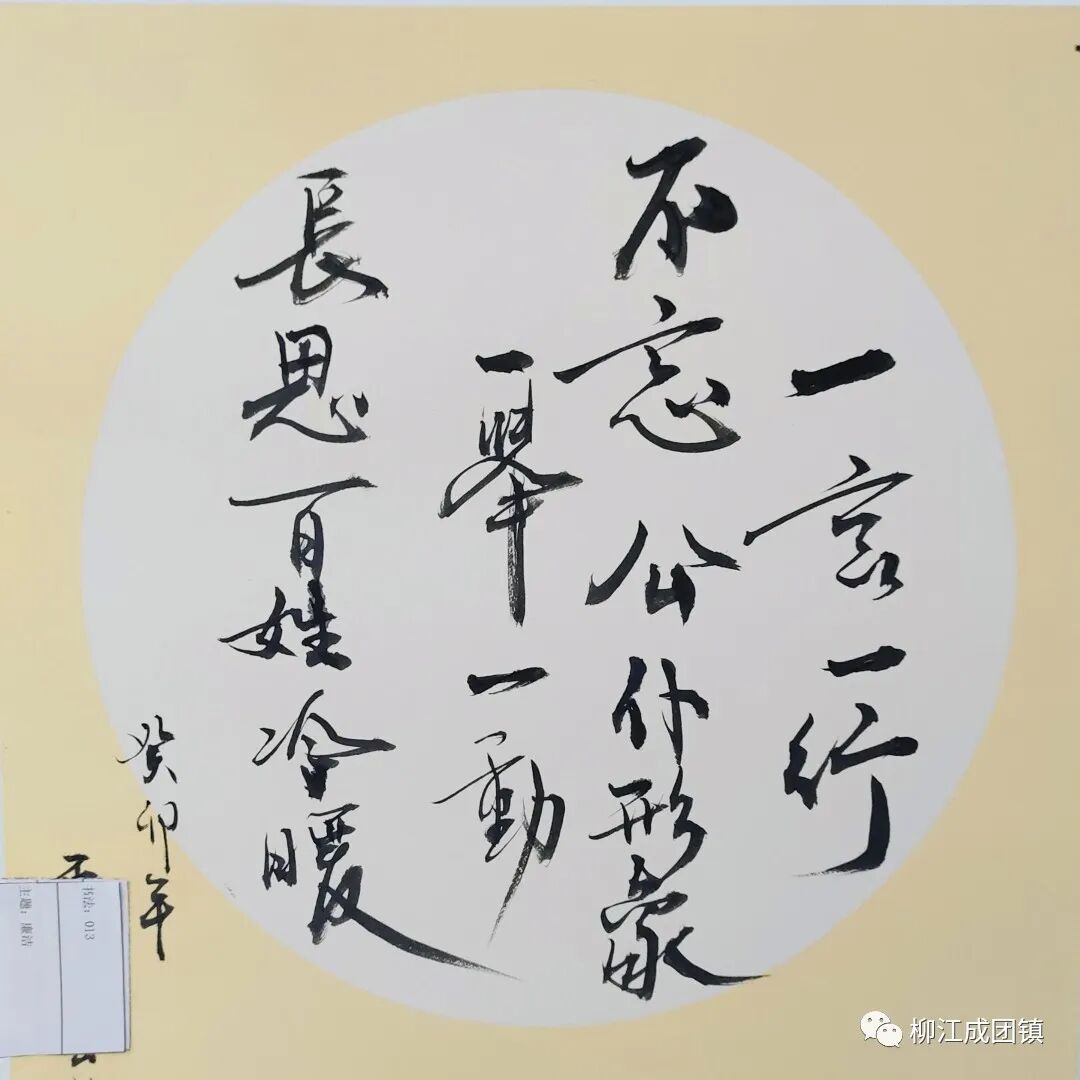 一言一行
不忘公仆形象
一举一動
長思百姓冷暖
癸卯年
书法：013
主题：廉洁
柳江成团镇